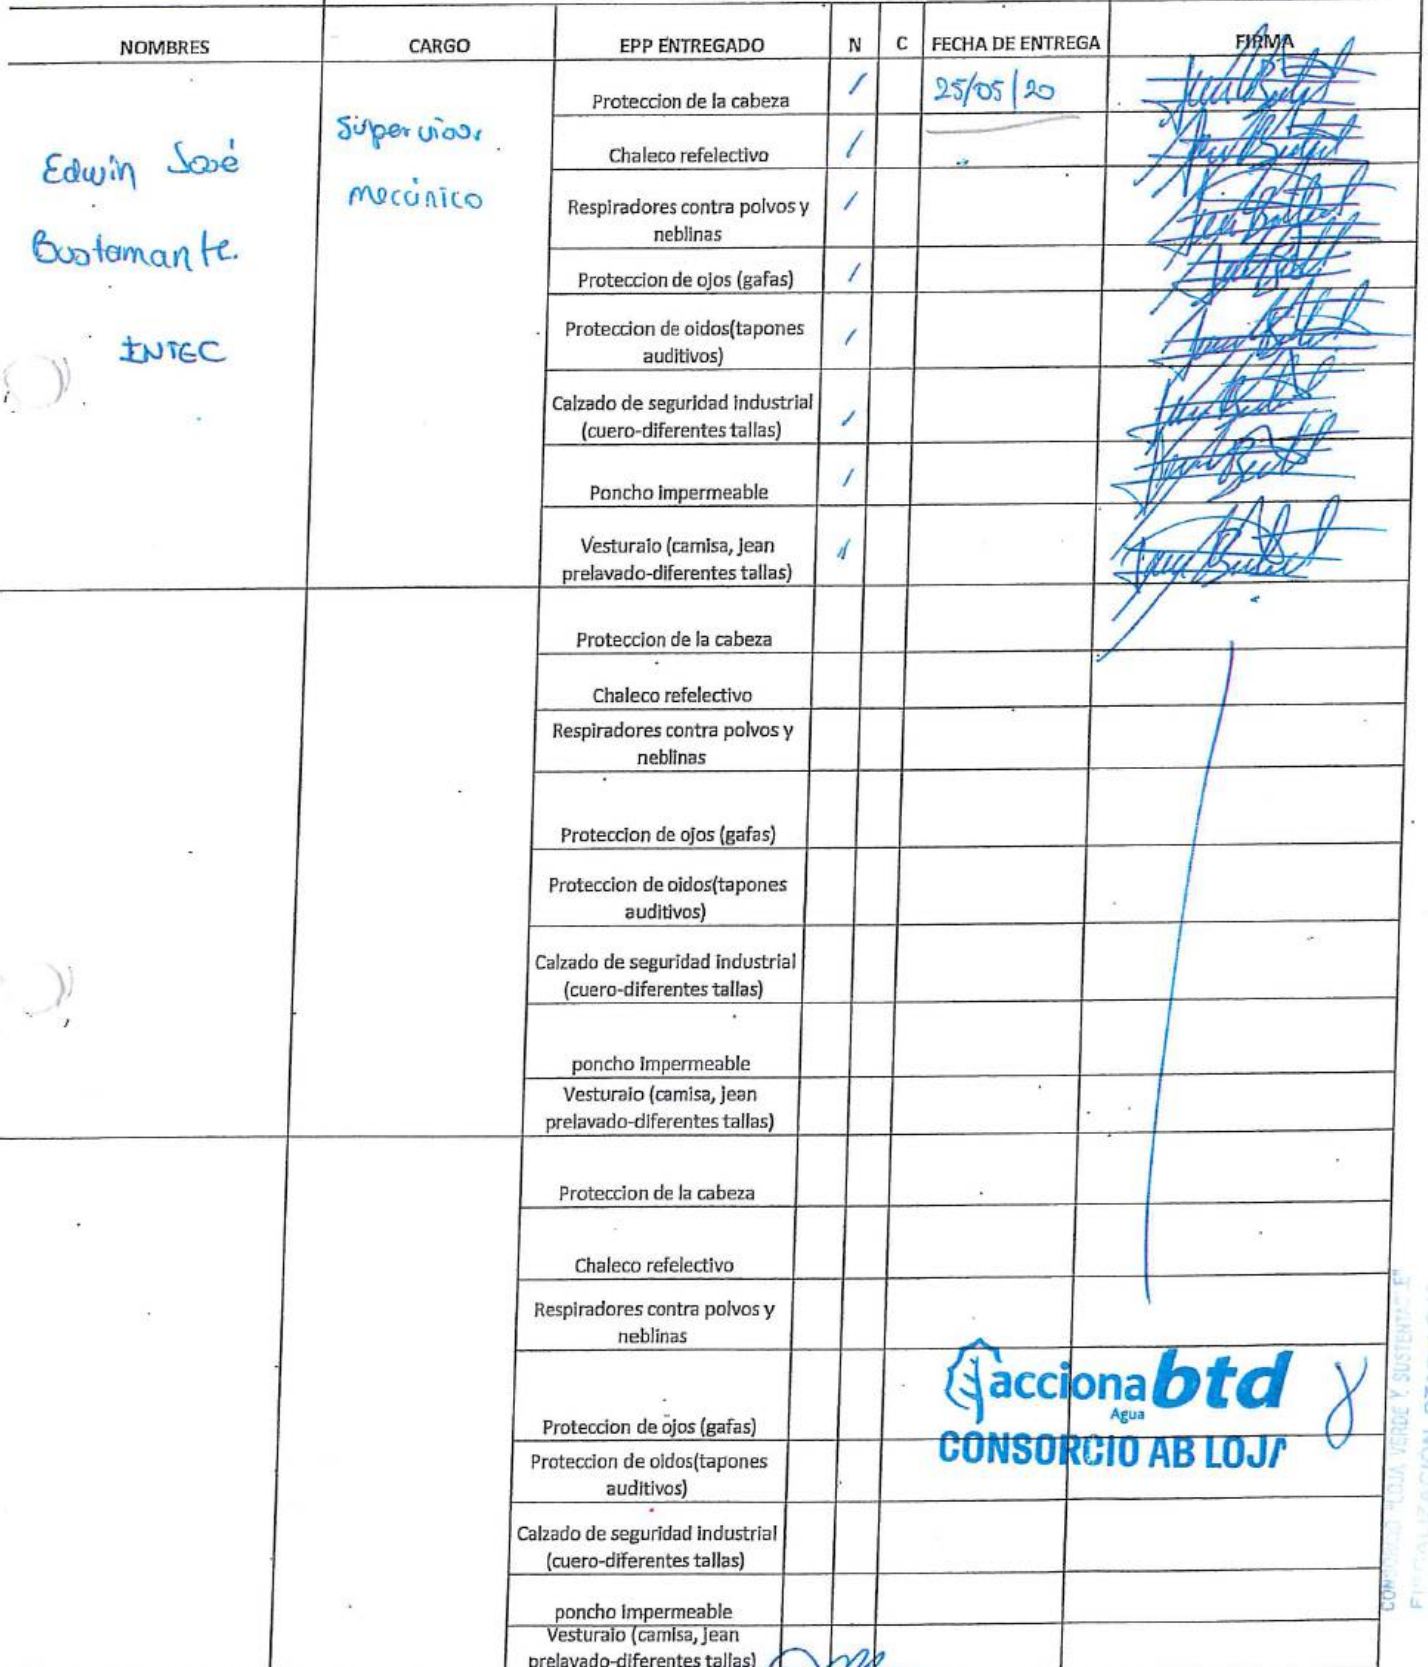 NOMBRES CARGO EPP ENTREGADO N C FECHA DE ENTREGA FIRMA
Proteccion de la cabeza / 25/05/20
Supervisor
Chaleco refelectivo /
Edwin José
mecánico
Respiradores contra polvos y /
neblinas
Bustamante.
Proteccion de ojos (gafas) /
Proteccion de oidos(tapones /
auditivos)
INTEC
Calzado de seguridad industrial /
(cuero-diferentes tallas)
Poncho impermeable /
Vesturaio (camisa, jean
prelavado-diferentes tallas)
Proteccion de la cabeza
Chaleco refelectivo
Respiradores contra polvos y
neblinas
Proteccion de ojos (gafas)
Proteccion de oidos(tapones
auditivos)
Calzado de seguridad industrial
(cuero-diferentes tallas)
poncho impermeable
Vesturaio (camisa, jean
prelavado-diferentes tallas)
Proteccion de la cabeza
Chaleco refelectivo
Respiradores contra polvos y
neblinas
Proteccion de ojos (gafas)
Proteccion de oidos(tapones
auditivos)
Calzado de seguridad industrial
(cuero-diferentes tallas)
poncho impermeable
Vesturaio (camisa, jean
prelavado-diferentes tallas)
acciona btd
Agua
CONSORCIO AB LOJA
CONSORCIO "LOJA VERDE Y SUSTENTABLE"